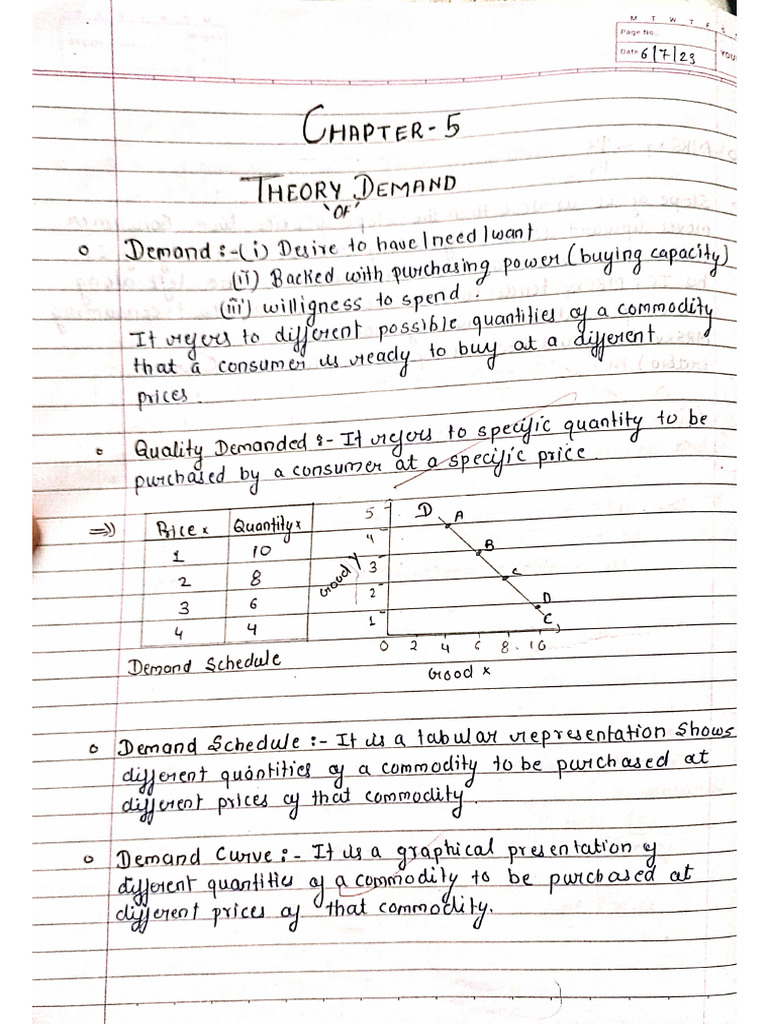 M T W T F S
Page No.:
Date: 6/7/23
YOU
CHAPTER-5
THEORY DEMAND
'OF'
o Demand :- (i) Desire to have/need/want
(ii) Backed with purchasing power (buying capacity)
(iii) willigness to spend.
It refers to different possible quantities of a commodity
that a consumer is ready to buy at a different
prices.
o Quality Demanded :- It refers to specific quantity to be
purchased by a consumer at a specific price.
=>)) Price x Quantity x
1 10
2 8
3 6
4 4
Demand Schedule
5 D A
4 B
3 C
2 D
1 C
Good Y
0 2 4 6 8. 10
Good x
o Demand Schedule :- It is a tabular representation Shows
different quantities of a commodity to be purchased at
different prices of that commodity.
o Demand Curve :- It is a graphical presentation of
different quantities of a commodity to be purchased at
different prices of that commodity.